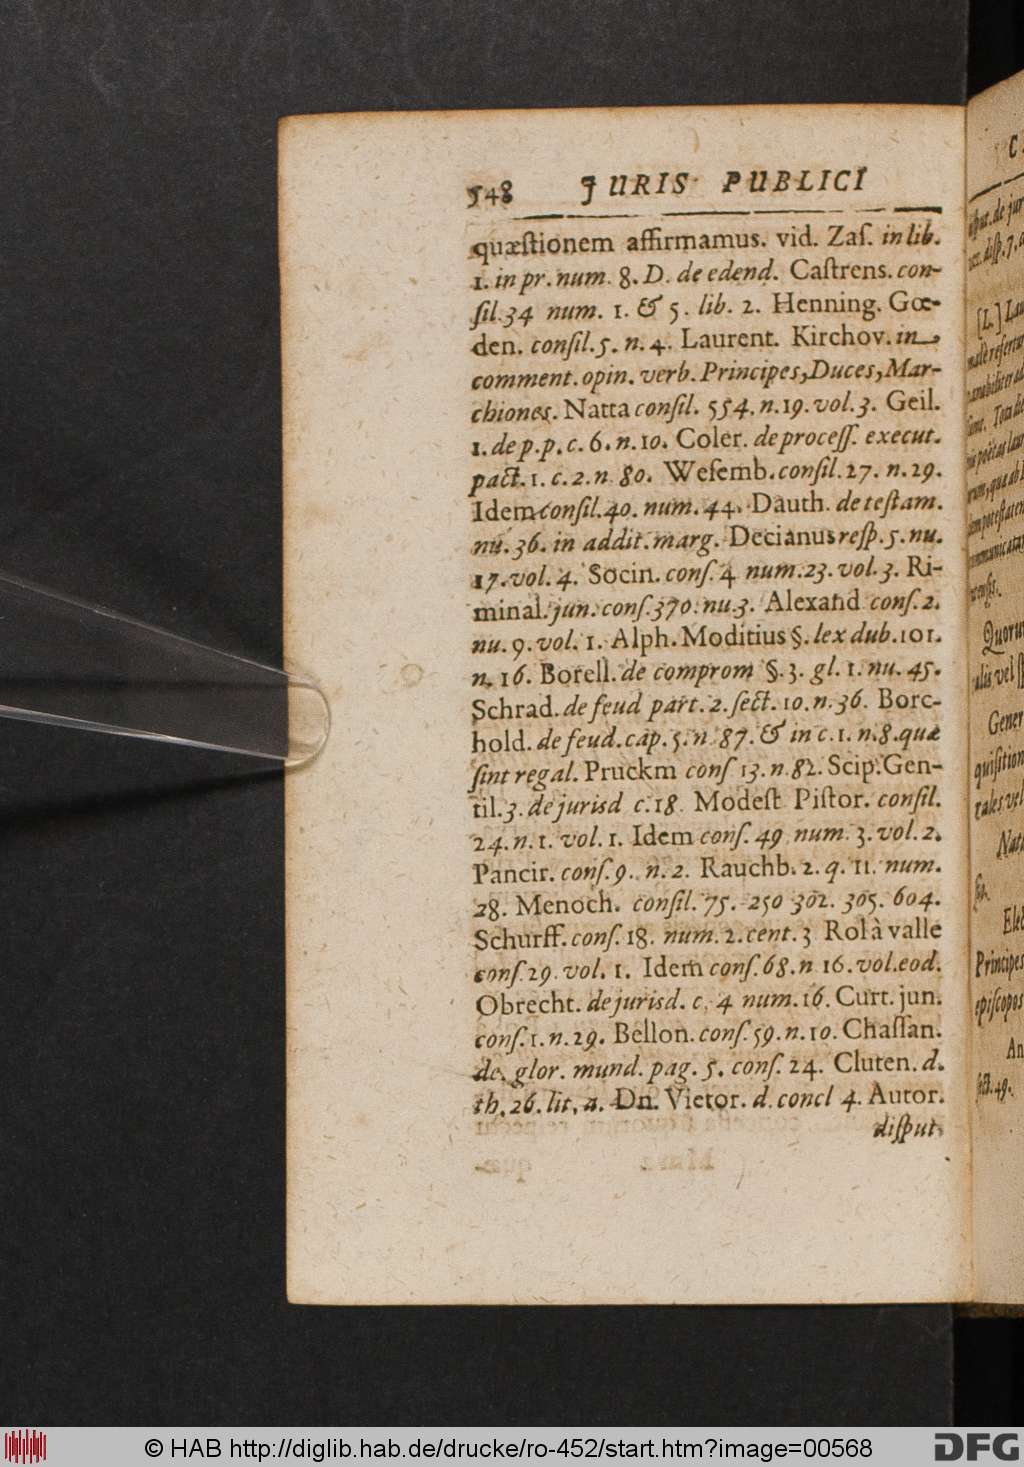 548 JURIS PUBLICI
quæſtionem affirmamus. vid. Zaſ. in lib.
1. in pr. num. 8. D. de edend. Caſtrens. con-
ſil. 34 num. 1. & 5. lib. 2. Henning. Gœ-
den. conſil. 5. n. 4. Laurent. Kirchov. in
comment. opin. verb. Principes, Duces, Mar-
chiones. Natta conſil. 554. n. 19. vol. 3. Geil.
1. de p. p. c. 6. n. 10. Coler. de proceſſ. execut.
pact. 1. c. 2. n 80. Weſemb. conſil. 27. n. 29.
Idem conſil. 40. num. 44. Dauth. de teſtam.
nu. 36. in addit. marg. Decianus reſp. 5. nu.
17. vol. 4. Socin. conſ. 4 num. 23. vol. 3. Ri-
minal. jun. conſ. 370. nu. 3. Alexand conſ. 2.
nu. 9. vol. 1. Alph. Moditius §. lex dub. 101.
n. 16. Borell. de comprom §. 3. gl. 1. nu. 45.
Schrad. de feud part. 2. ſect. 10. n. 36. Borc-
hold. de feud. cap. 5. n 87. & in c. 1. n. 8. quæ
ſint regal. Pruckm conſ 13. n. 82. Scip. Gen-
til. 3. de jurisd c. 18 Modeſt Piſtor. conſil.
24. n. 1. vol. 1. Idem conſ. 49 num. 3. vol. 2.
Pancir. conſ. 9. n. 2. Rauchb. 2. q. 11. num.
28. Menoch. conſil. 75. 250 302. 305. 604.
Schurff. conſ. 18. num. 2. cent. 3 Rol à valle
conſ. 29. vol. 1. Idem conſ. 68. n 16. vol. eod.
Obrecht. de jurisd. c. 4 num. 16. Curt. jun.
conſ. 1. n. 29. Bellon. conſ. 59. n. 10. Chaſſan.
de glor. mund. pag. 5. conſ. 24. Cluten. d.
th. 26. lit. a. Dn. Vietor. d. concl 4. Autor.
diſput.
[L.] Lau
Quorun
alis vel
Gener
quiſition
rales vel
Nat
Elec
Principes
epiſcopos
An
ſect. 49.
© HAB http://diglib.hab.de/drucke/ro-452/start.htm?image=00568
DFG